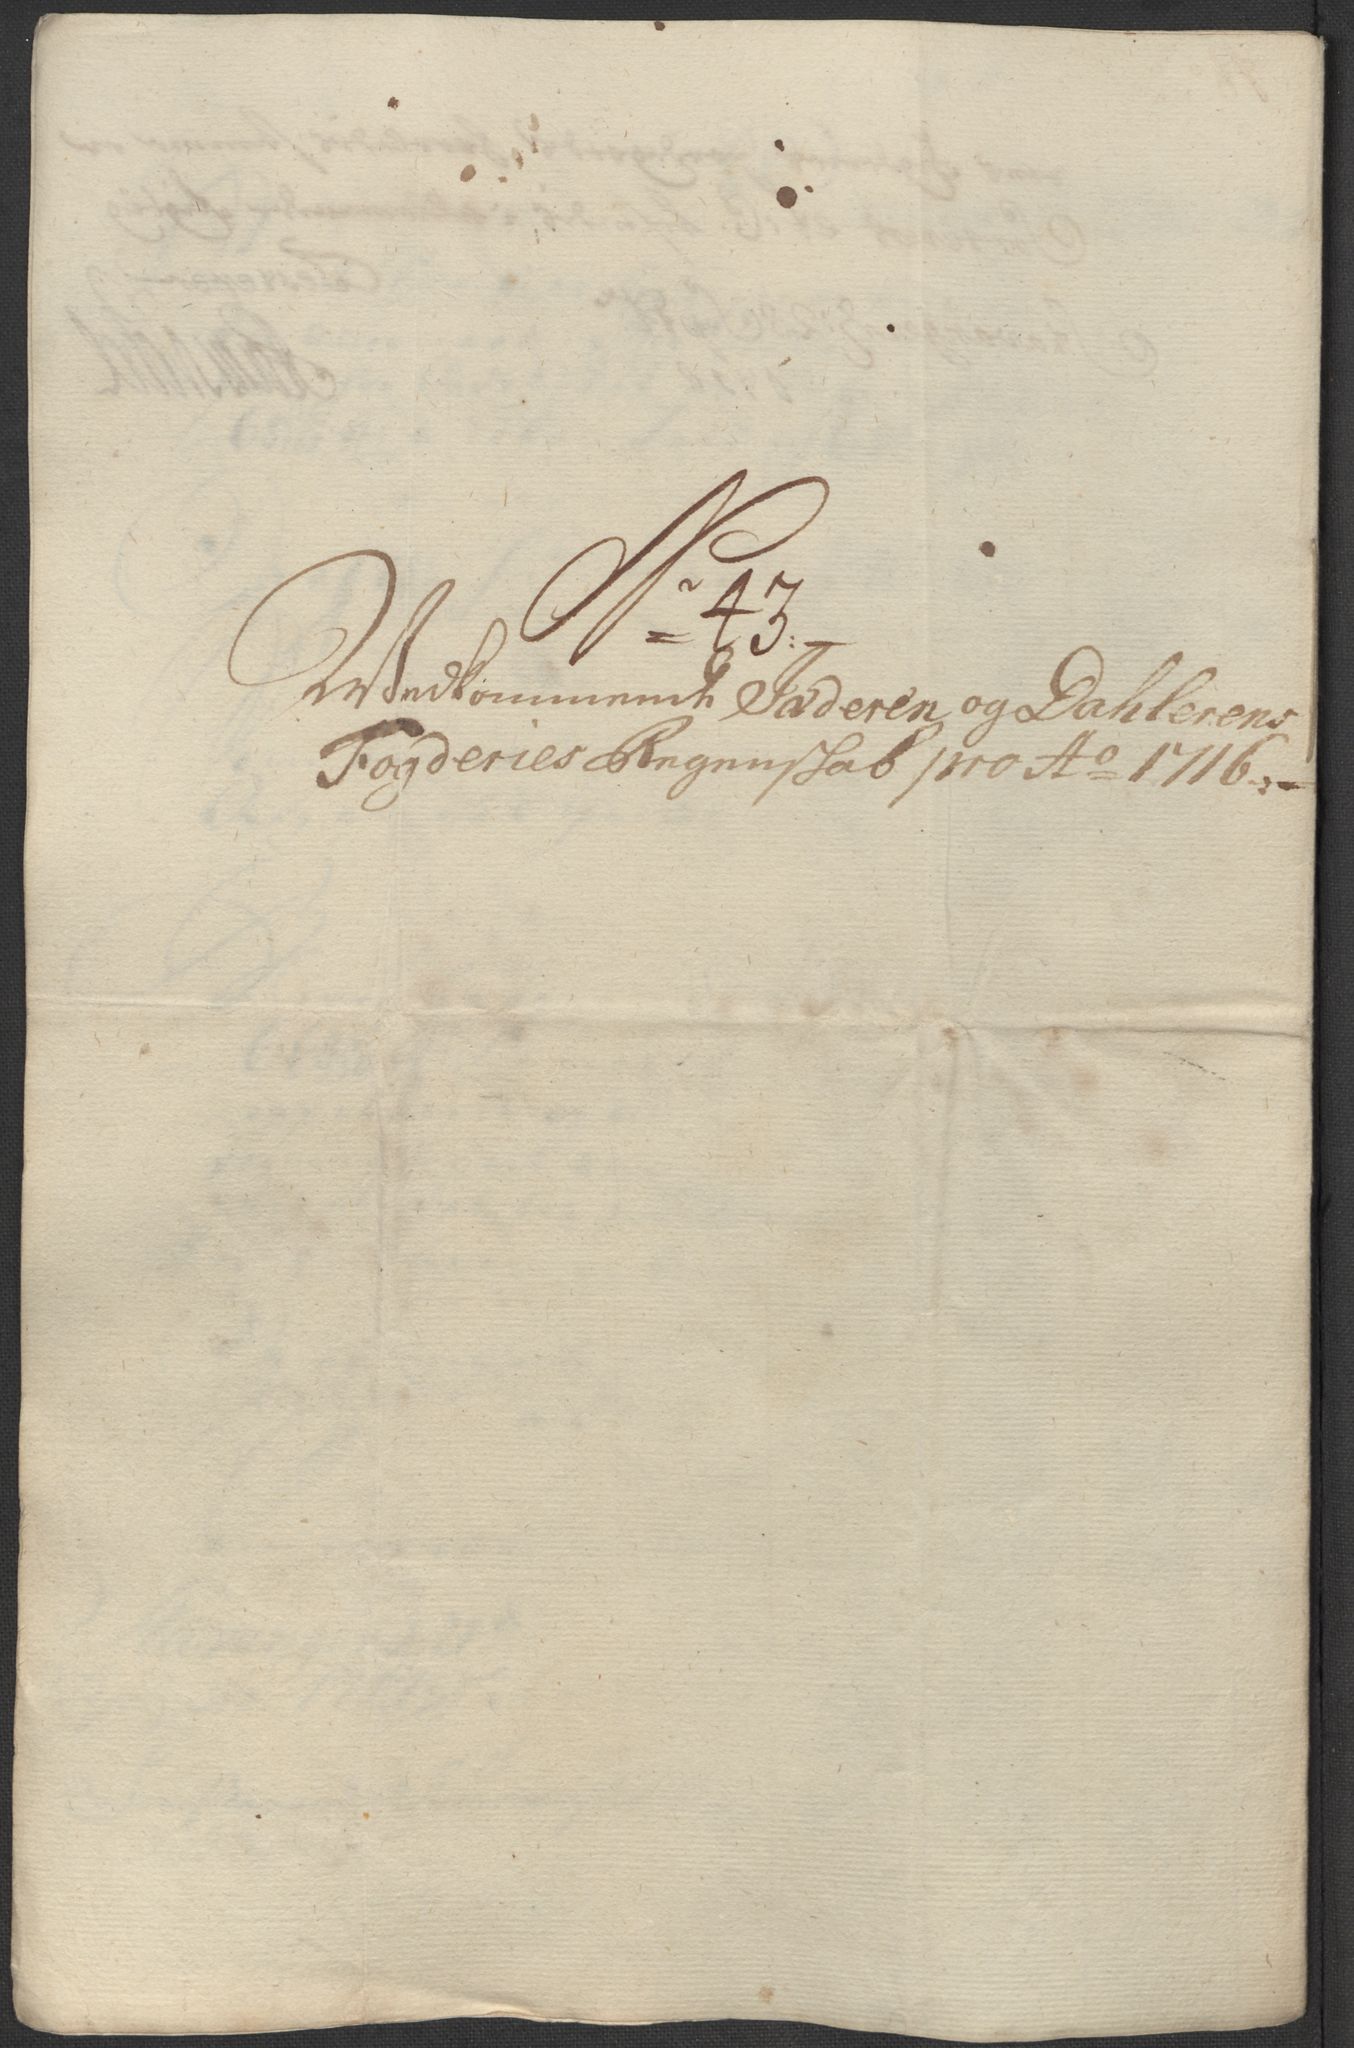 No 43.
Vedkommende Jæderen og Dahlerens
Fogderies Regenskab pro Ao 1716.